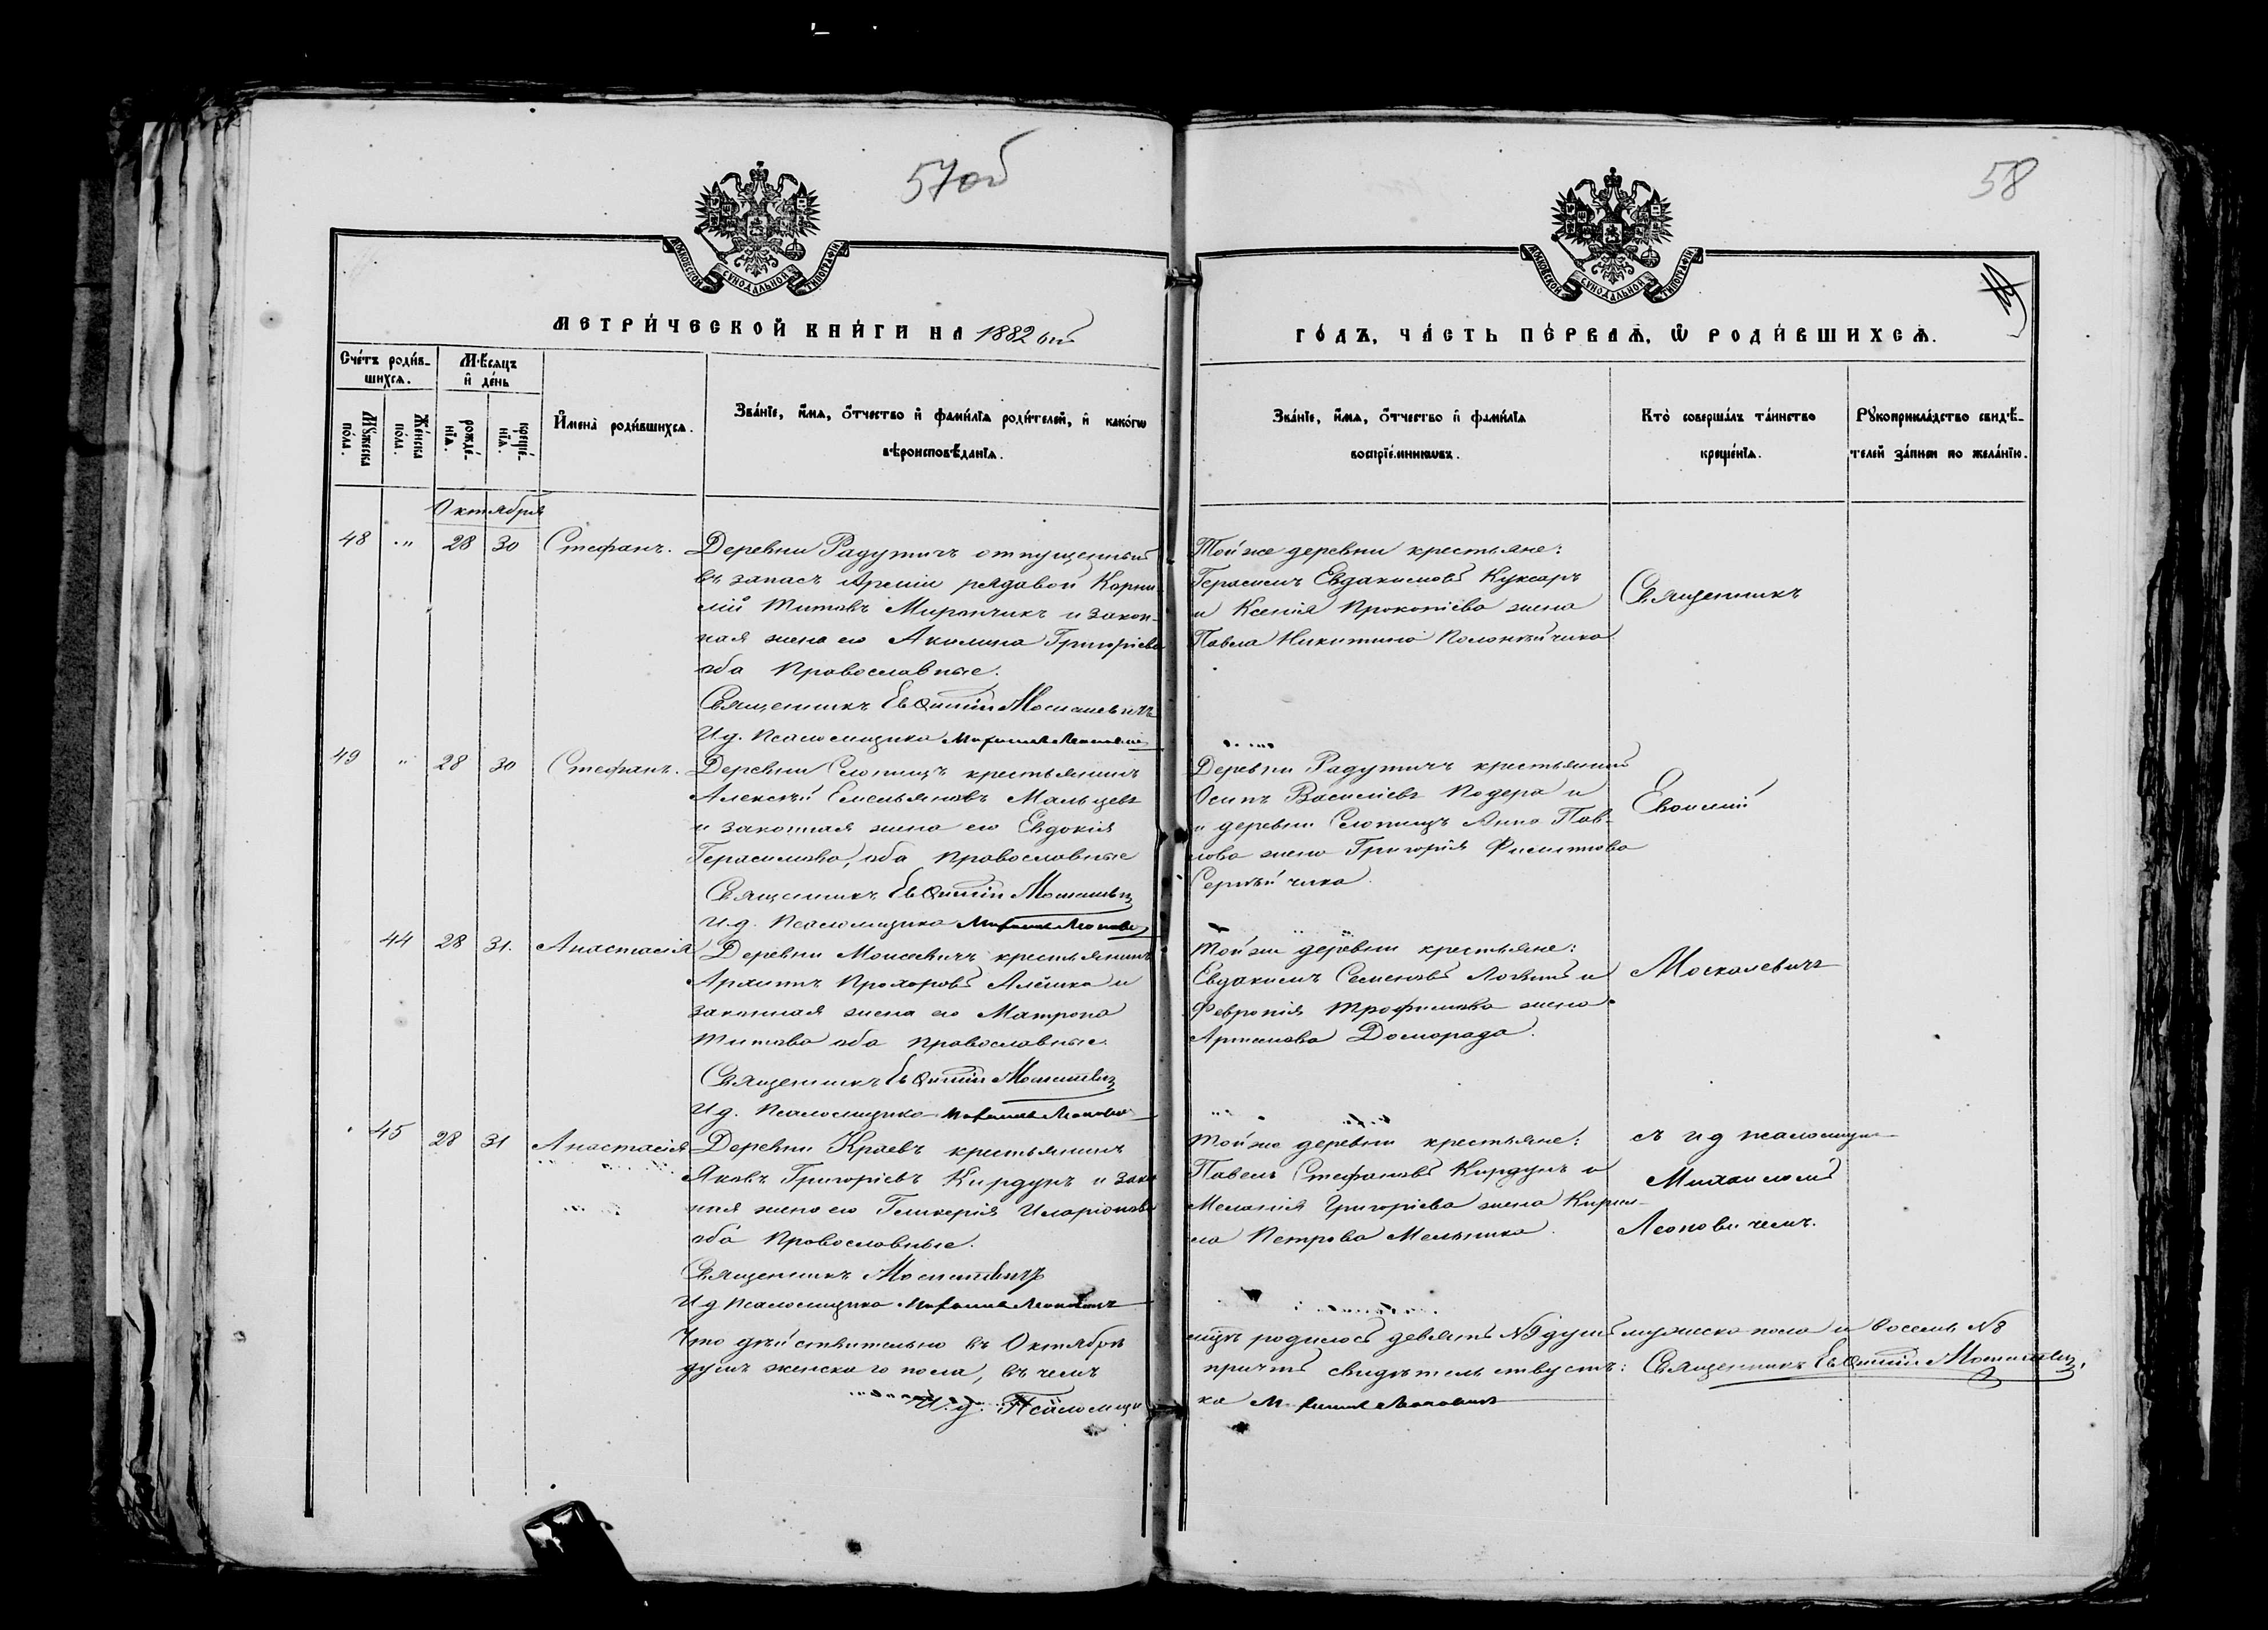 57об
58
МОСКОВСКОЙ СѴНОДАЛЬНОЙ ТИПОГРАФІИ
МОСКОВСКОЙ СѴНОДАЛЬНОЙ ТИПОГРАФІИ
МЕТРИ́ЧЕСКОЙ КНИ́ГИ НА 1882 ый
ГО́ДЪ, ЧА́СТЬ ПЕ́РВАѦ, Ѡ РОДИ́ВШИХСѦ.
Сче́тъ роди́в-
шихсѧ.
Мѣсѧцъ
и де́нь
Мꙋ́жеска по́ла.
Же́нска по́ла.
рожде́-нїѧ.
креще́-нїѧ.
Имена̀ роди́вшихсѧ.
Зва́нїе, и́мѧ, ѻ́тчество и фами́лїѧ роди́телей, и како́гѡ
вѣроисповѣданїѧ.
Зва́нїе, и́мѧ, ѻ́тчество и фами́лїѧ
воспрїе́мникѡвъ.
Кто̀ соверша́лъ та́инство
креще́нїѧ.
Рꙋкоприкла́дство свидѣ́-
телей за́писи по жела́нїю.
Октября
48 " 28 30 Стефанъ.
Деревни Радутичъ отпущенный
въ запасъ Арміи рядовой Корни-
лій Титовъ Мирончикъ и закон-
ная жена его Акилина Григоріева
оба Православные.
Священникъ Евѳимій Москалевичъ
И.д. Псаломщика Михаилъ Леоновичъ
Той же деревни крестьяне:
Герасимъ Евдакимовъ Куксаръ
и Ксенія Прокопіева жена
Павла Никитина Полонѣйчика
Священникъ
49 " 28 30 Стефанъ.
Деревни Слопищъ крестьянинъ
Алексѣй Емельяновъ Мальцевъ
и законная жена его Евдокія
Герасимова, оба Православные
Священникъ Евѳимій Москалевичъ
И.д. Псаломщика Михаилъ Леоновичъ
Деревни Радутичъ крестьянинъ
Осипъ Василіевъ Подера и
и деревни Слопищъ Анна Пав-
лова жена Григорія Филиппова
Сергѣйчика.
Евѳимій
44 28 31. Анастасія
Деревни Моисеевичъ крестьянинъ
Архипъ Прохоровъ Алешко и
законная жена его Матрона
Титова оба Православные.
Священникъ Евѳимій Москалевичъ
И.д. Псаломщика Михаилъ Леоновичъ
Той же деревни крестьяне:
Евдакимъ Семеновъ и
Февронія Трофимова жена
Артемова Доморада.
Москалевичъ
45 28 31 Анастасія
Деревни Краевъ крестьянинъ
Яковъ Григоріевъ Кирдунъ и зако-
нная жена его Гликерія Иларіонова
оба Православные.
Священникъ Москалевичъ
И.д. Псаломщика Михаилъ Леоновичъ
Той же деревни крестьяне:
Павелъ Стефановъ Кирдунъ и
Меланія Григорьева жена Кирил-
ла Петрова Мельника.
съ и д псаломщика
Михаиломъ
Леоновичемъ.
Что дѣйствительно въ Октябрѣ мѣсяцѣ родилось девять №9 душъ мужеска пола и восемь №8
душъ женскаго пола, въ чемъ причтъ свидѣтельствуетъ: Священникъ Евѳимій Москалевичъ,
И.д. Псаломщика Михаилъ Леоновичъ